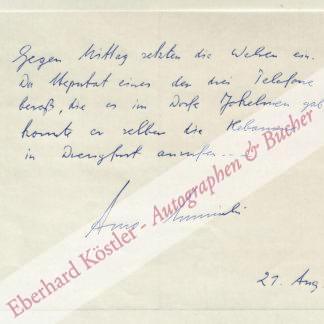 Gegen Mittag setzten die Wehen ein.
Da Neputat eines der drei Telefone
besaß, die es im Dorfe Jokehnen gab
konnte er selber die Hebamme
in Drengfurt anrufen...
Arno Surminski
21. Aug.
Eberhard Köstler - Autographen & Bücher